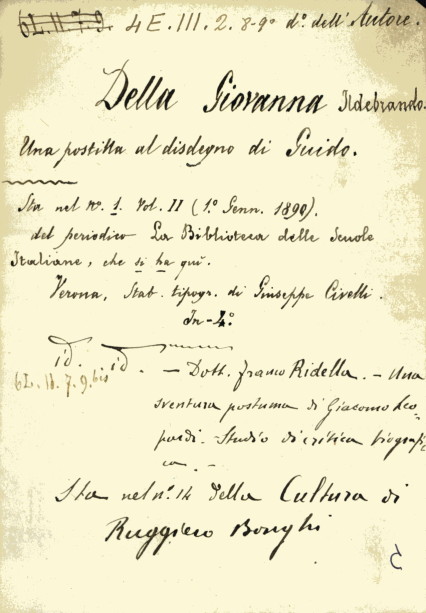 6L. II. 7. 9. 4 E. III. 2. 8-9º dº. dell'Autore.
Della Giovanna Ildebrando.
Una postilla al disdegno di Guido.
Sta nel nº. 1. Vol. II (1º. Genn. 1890).
del periodico La Biblioteca delle Scuole
Italiane, che si ha quì.
Verona, Stab. tipogr. di Giuseppe Civelli.
In-4º.
id. id. — Dott. Franco Ridella. — Una
6L. II. 7. 9. bis
sventura postuma di Giacomo Leo-
pardi. Studio di critica biografi-
ca. —
Sta nel nº. 14 della Cultura di
Ruggiero Bonghi